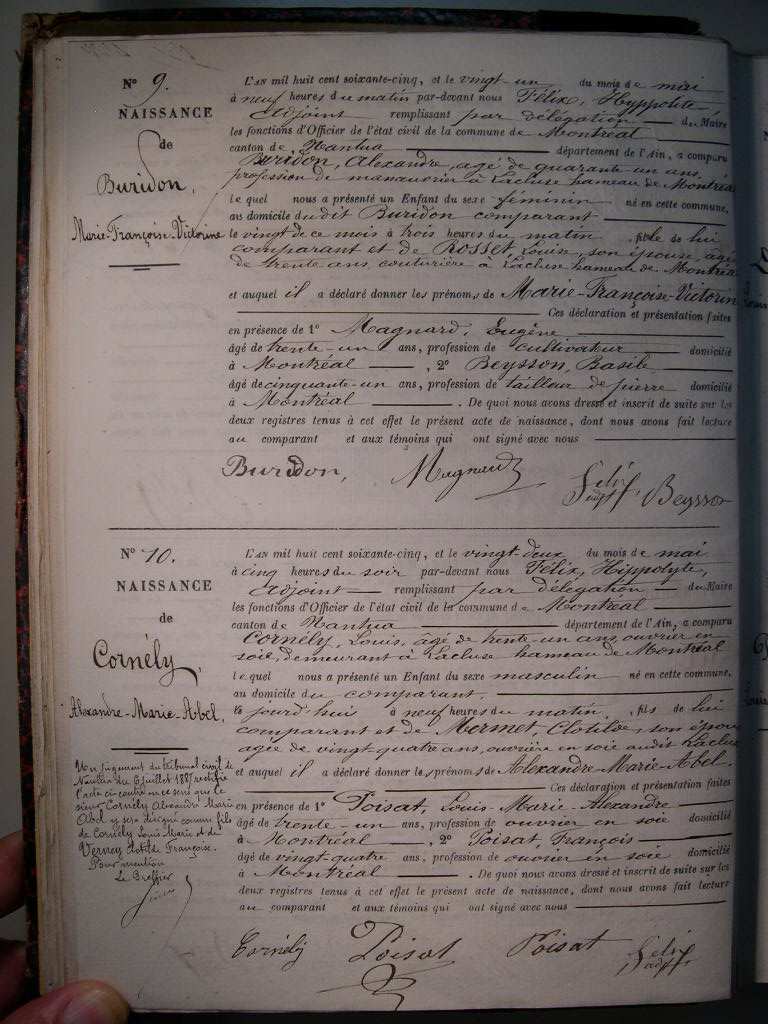 N° 9.
NAISSANCE
de
Buridon,
Marie-Françoise-Victorine
L'AN mil huit cent soixante-cinq, et le vingt-un du mois de mai
à neuf heures du matin par-devant nous Félix, Hyppolite-
Adjoint remplissant par délégation du Maire
les fonctions d'Officier de l'état civil de la commune de Montréal
canton de Nantua département de l'Ain, a comparu
Buridon, Alexandre, agé de quarante-un ans,
profession de manouvrier à Lacluse hameau de Montréal
lequel nous a présenté un Enfant du sexe feminin né en cette commune,
au domicile dudit Buridon comparant
le vingt de ce mois à trois heures du matin, fille de lui
comparant et de ROSSET Louise, son épouse, agée
de trente ans, couturière à Lacluse hameau de Montréal
et auquel il a déclaré donner les prénoms de Marie-Françoise-Victorin
Ces déclaration et présentation faites
en présence de 1° Magnard, Eugène
âgé de trente-un ans, profession de cultivateur domicilié
à Montréal, 2° Beysson, Basile
âgé de cinquante-un ans, profession de tailleur de pierre domicilié
à Montréal. De quoi nous avons dressé et inscrit de suite sur les
deux registres tenus à cet effet le présent acte de naissance, dont nous avons fait lecture
au comparant et aux témoins qui ont signé avec nous
Buridon, Magnard Félix adjt Beysson
N° 10.
NAISSANCE
de
Cornély,
Alexandre-Marie-Abel,
Un jugement du tribunal civil de
Nantua du 6 juillet 1887 rectifie
l'acte ci-contre en ce sens que le
sieur Cornély Alexandre Marie
Abel y sera désigné comme fils
de Cornély Louis Marie et de
Vernoy Clotilde Françoise.
Pour mention
Le Greffier
L'AN mil huit cent soixante-cinq, et le vingt-deux du mois de mai
à cinq heures du soir par-devant nous Félix, Hippolyte,
Adjoint remplissant par délégation du Maire
les fonctions d'Officier de l'état civil de la commune de Montréal
canton de Nantua département de l'Ain, a comparu
Cornély, Louis, agé de trente-un ans, ouvrier en
soie, demeurant à Lacluse hameau de Montréal
lequel nous a présenté un Enfant du sexe masculin né en cette commune,
au domicile du comparant,
le jourd'hui à neuf heures du matin, fils de lui
comparant et de Mermet, Clotilde, son épouse
agée de vingt quatre ans, ouvrière en soie audit Lacluse
et auquel il a déclaré donner les prénoms de Alexandre-Marie-Abel.
Ces déclaration et présentation faites
en présence de 1° Poisat, Louis-Marie-Alexandre
âgé de trente-un ans, profession de ouvrier en soie domicilié
à Montréal, 2° Poisat, François
âgé de vingt-quatre ans, profession de ouvrier en soie domicilié
à Montréal. De quoi nous avons dressé et inscrit de suite sur les
deux registres tenus à cet effet le présent acte de naissance, dont nous avons fait lecture
au comparant et aux témoins qui ont signé avec nous
Cornély Poisat Poisat Félix adjt